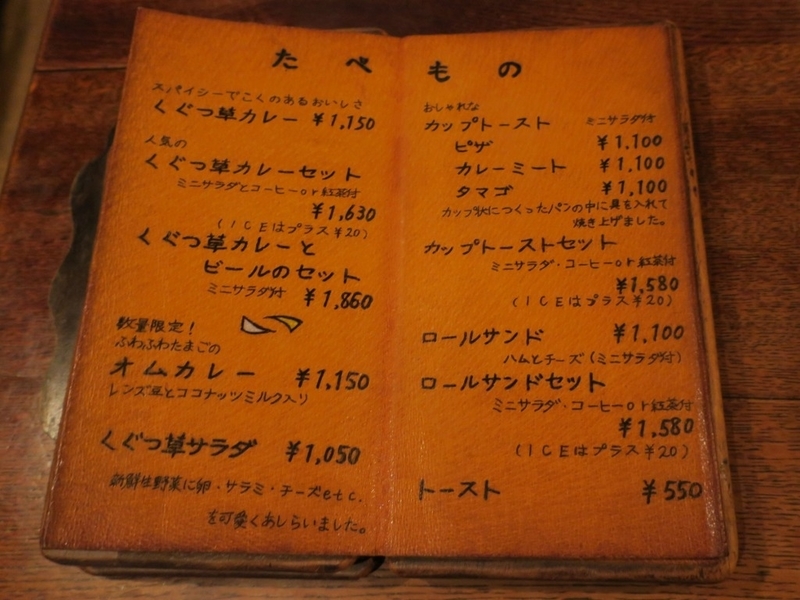 たべもの
スパイシーでこくのあるおいしさ
くぐつ草カレー ¥1,150
人気の
くぐつ草カレーセット
ミニサラダとコーヒーor紅茶付
¥1,630
(ICEはプラス¥20)
くぐつ草カレーと
ビールのセット
ミニサラダ付 ¥1,860
数量限定!
ふわふわたまごの
オムカレー ¥1,150
レンズ豆とココナッツミルク入り
くぐつ草サラダ ¥1,050
新鮮生野菜に卵・サラミ・チーズetc.
を可愛くあしらいました。
おしゃれな
カップトースト ミニサラダ付
ピザ ¥1,100
カレーミート ¥1,100
タマゴ ¥1,100
カップ状につくったパンの中に具を入れて
焼き上げました。
カップトーストセット
ミニサラダ・コーヒーor紅茶付
¥1,580
(ICEはプラス¥20)
ロールサンド ¥1,100
ハムとチーズ(ミニサラダ付)
ロールサンドセット
ミニサラダ・コーヒーor紅茶付
¥1,580
(ICEはプラス¥20)
トースト ¥550